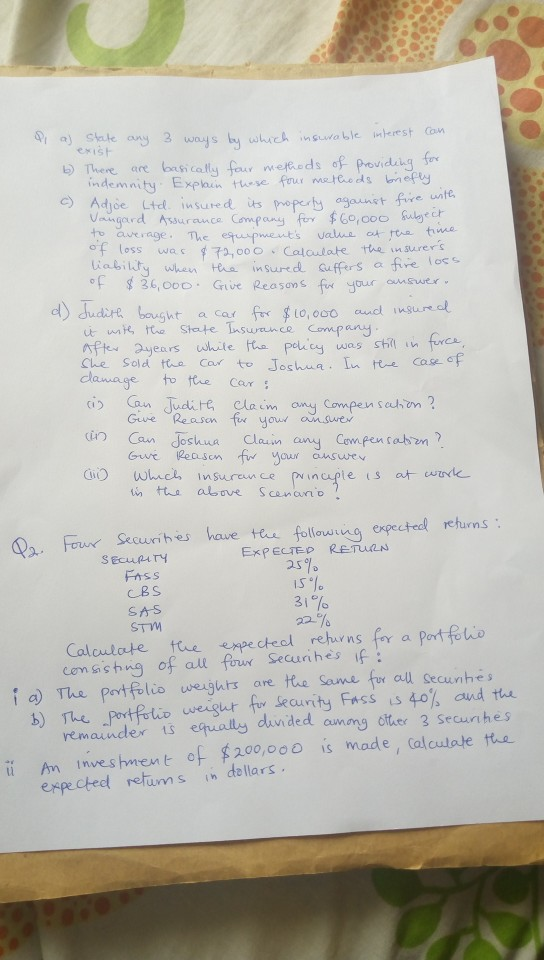 Q1 a) State any 3 ways by which insurable interest can
exist
b) There are basically four methods of providing for
indemnity. Explain these four methods briefly
c) Adjoe Ltd. insured its property against fire with
Vangard Assurance Company for $60,000 subject
to average. The equipment's value at the time
of loss was $72,000. Calculate the insurer's
liability when the insured suffers a fire loss
of $36,000. Give Reasons for your answer.
d) Judith bought a car for $10,000 and insured
it with the State Insurance Company.
After 2years while the policy was still in force,
She sold the car to Joshua. In the case of
damage to the car :
(i) Can Judith claim any compensation?
Give Reason for your answer
(ii) Can Joshua Claim any Compensation?
Give Reason for your answer
(iii) Which insurance principle is at work
in the above Scenario?
Q2. Four Securities have the following expected returns :
SECURITY EXPECTED RETURN
FASS 25%
CBS 15%
SAS 31%
STM 22%
Calculate the expected returns for a portfolio
consisting of all four Securities if :
i a) The portfolio weights are the same for all securities
b) The portfolio weight for security FASS is 40% and the
remainder is equally divided among other 3 securities
ii An investment of $200,000 is made, calculate the
expected returns in dollars.